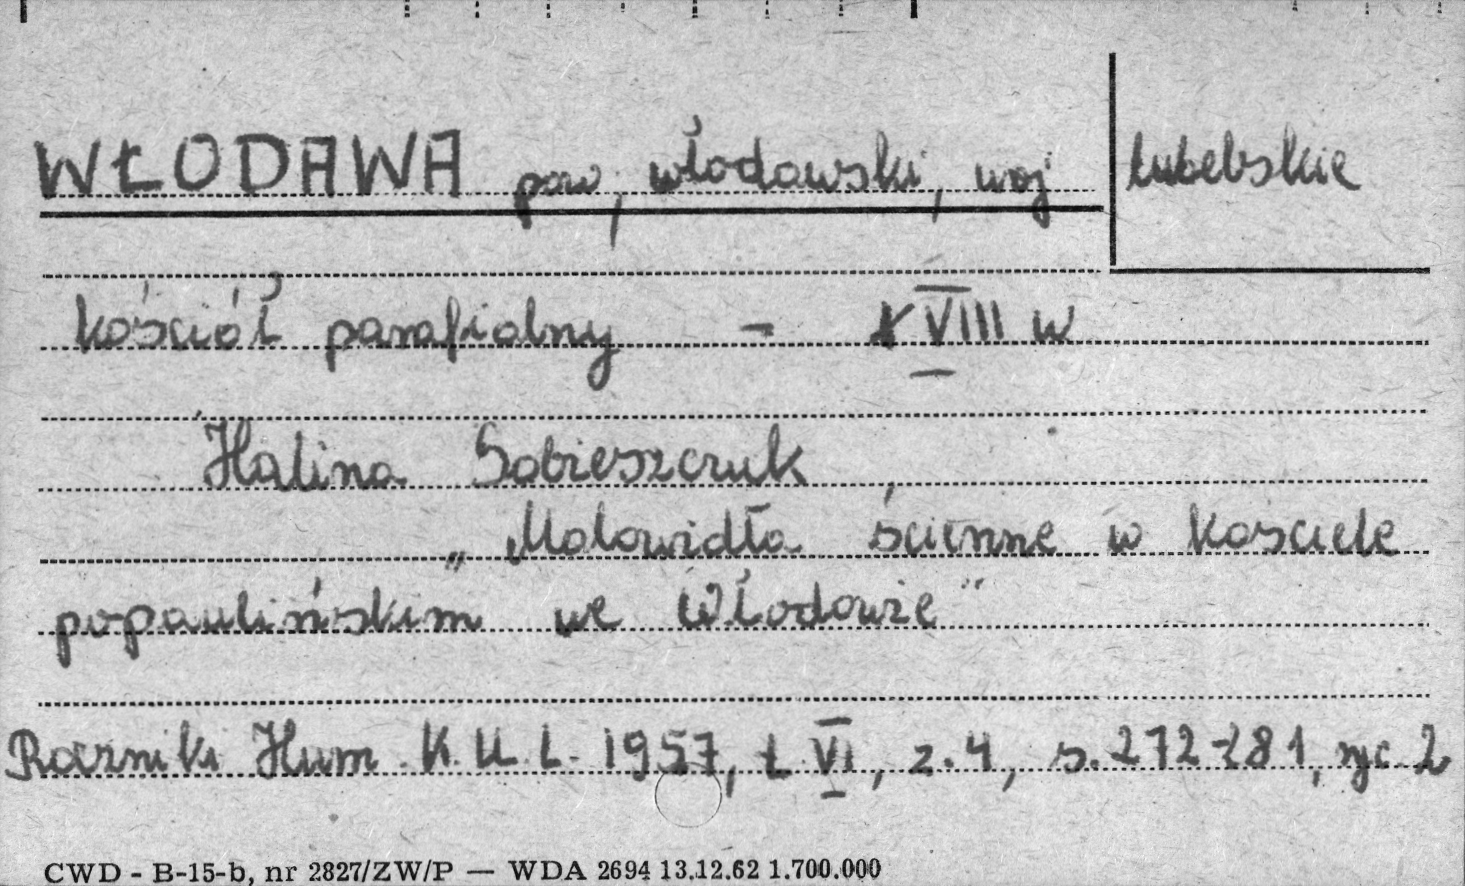 WŁODAWA pow, włodawski, woj lubelskie
kościół parafialny - XVIII w
Halina Sobieszczuk
„Malowidła ścienne w kosciele
popaulińskim we Włodawie"
Roczniki Hum. K.U.L. 1957, t. VI, z.4, s.272-281, ryc 2
CWD - B-15-b, nr 2827/ZW/P — WDA 2694 13.12.62 1.700.000